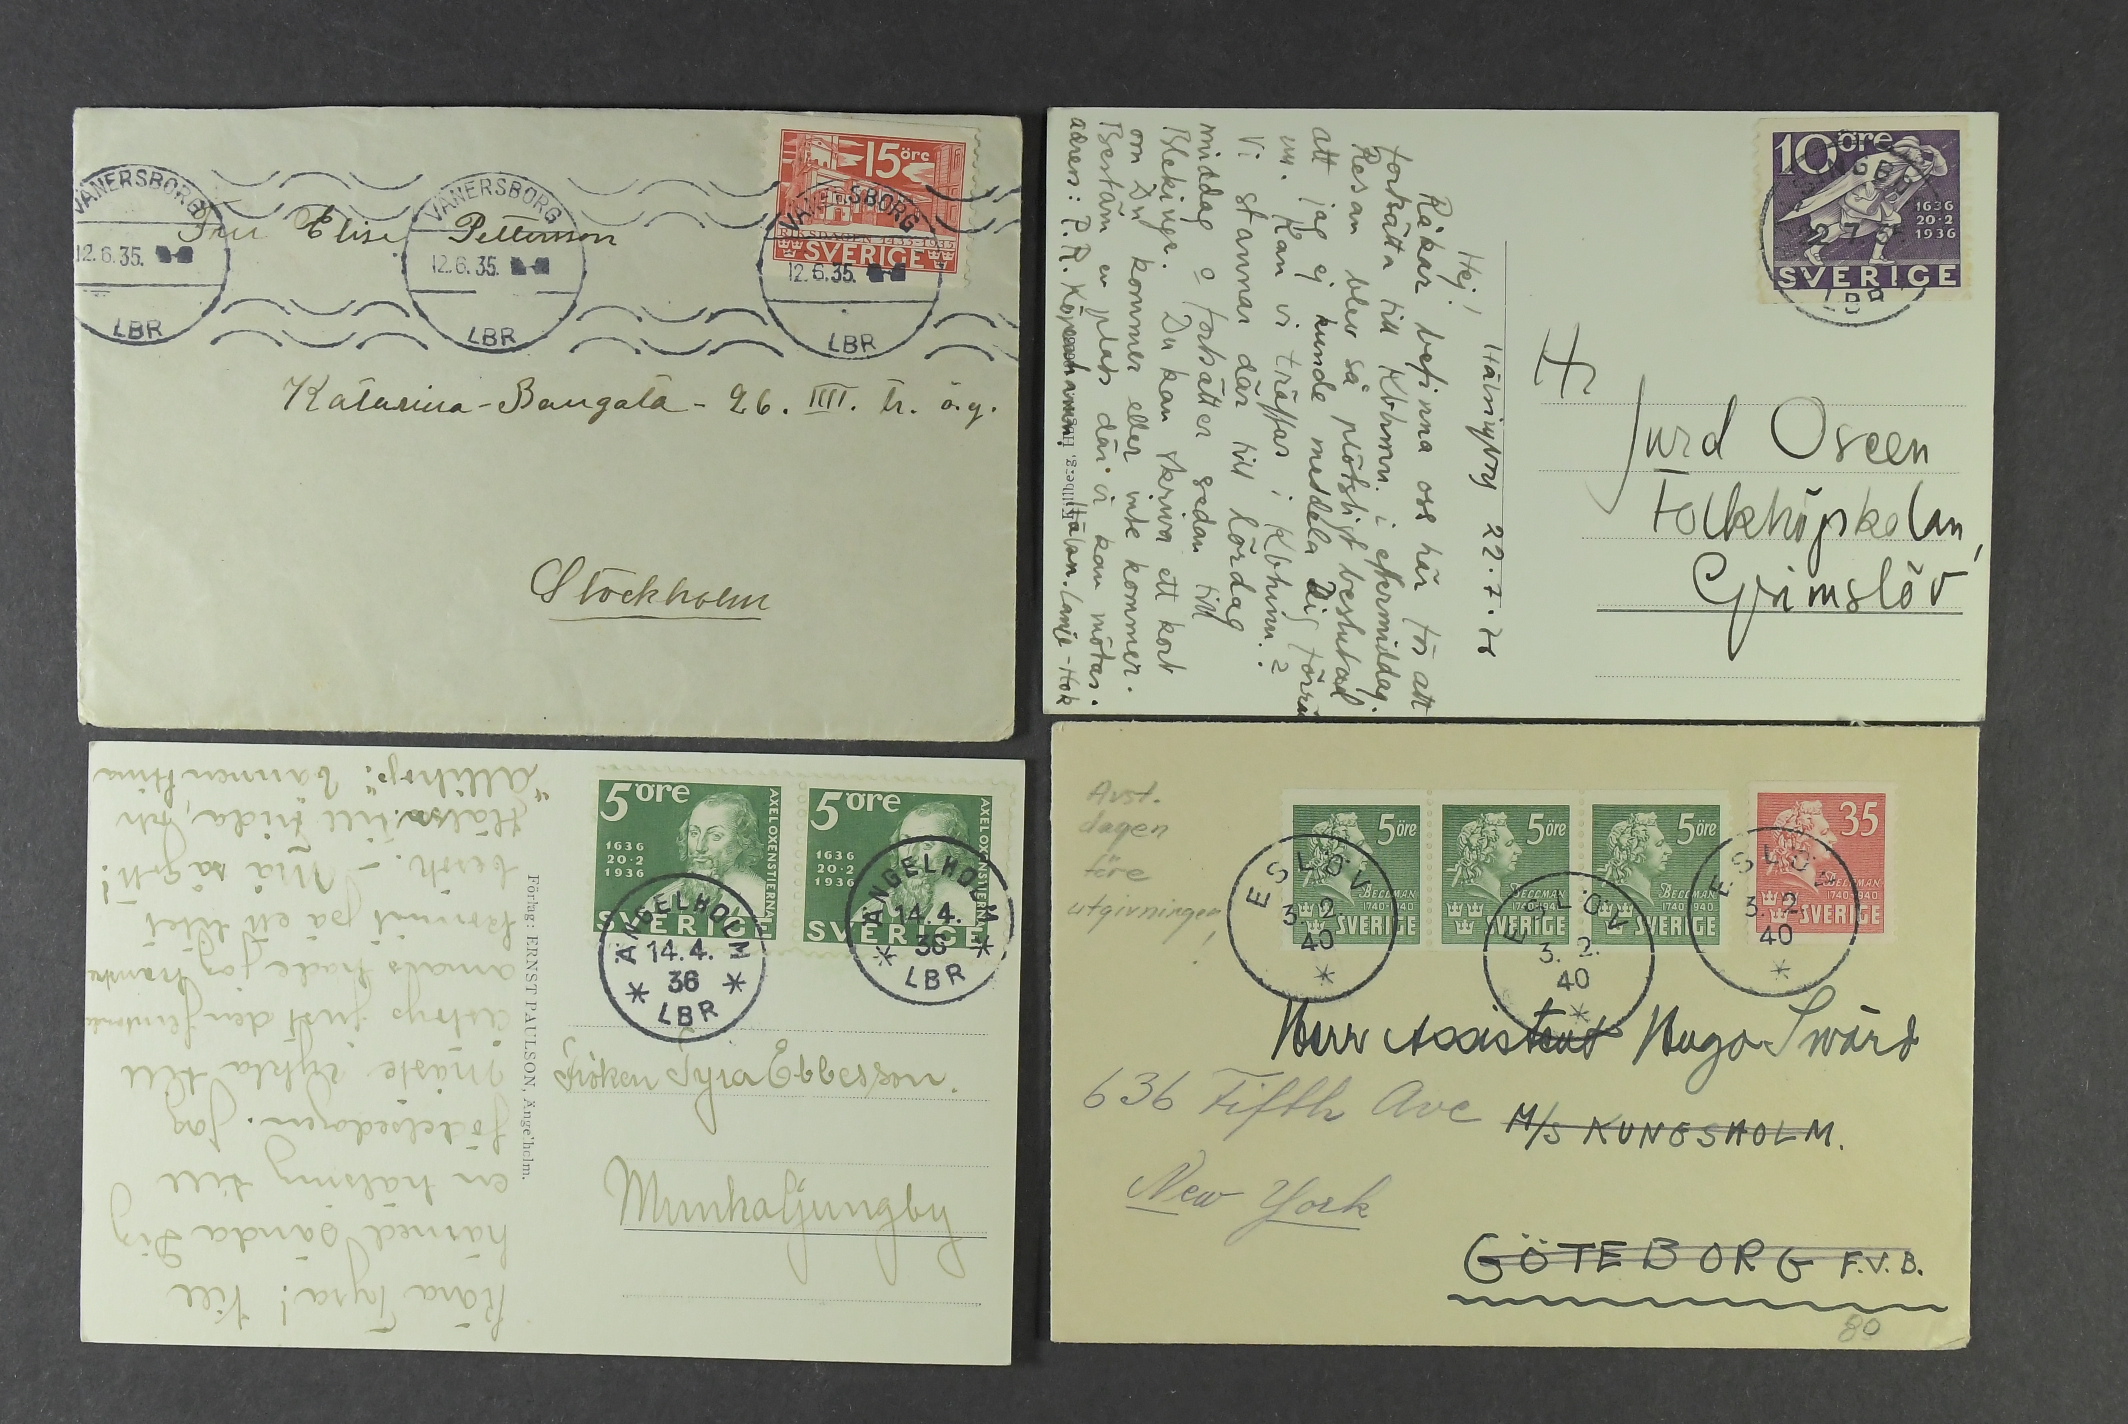 VÄNERSBORG
12.6.35.
LBR
VÄNERSBORG
12.6.35.
LBR
15 öre
RIKSDAGEN 1435-1935
SVERIGE
VÄNERSBORG
12.6.35.
LBR
Fru Elise Pettersson
Katarina-Bangata - 26. III. tr. ö.g.
Stockholm
Hälsingborg 22.7.36
Hej!
Råkar befinna oss här för att
fortsätta till Kbhmn. i eftermiddag.
Resan blev så plötsligt beslutad
att jag ej kunde meddela Dig förrän
nu. Kan vi träffas i Kbhmn.?
Vi stannar där till lördag
middag o fortsätter sedan till
Blekinge. Du kan skriva ett kort
om Du kommer eller inte kommer.
Bestäm en plats där vi kan mötas.
adress: P.R. Köpenhamn.
Hälsn. Lanje-Hok
10 öre
1636
20·2
1936
SVERIGE
LBR
Hr
Jurd Oseen
Folkhögskolan,
Grimslöv
Kära Tyra! Till
härmed sända Dig
en hälsning till
födelsedagen. Jag
måste cykla till
Astorp just den
annars hade jag kanske
kommit på ett litet
besök. - Må så gott!
Hälsa till Frida,
"Allihop"!
Förlag: ERNST PAULSON, Ängelholm.
5 öre
1636
20·2
1936
AXEL OXENSTIERNA
SVERIGE
5 öre
1636
20·2
1936
AXEL OXENSTIERNA
SVERIGE
ÄNGELHOLM
14.4.
36
LBR
ÄNGELHOLM
14.4.
36
LBR
Fröken
Munkaljungby
Avst.
dagen
före
utgivningen!
5 öre
BELLMAN
1740-1940
SVERIGE
5 öre
BELLMAN
1740-1940
SVERIGE
5 öre
BELLMAN
1740-1940
SVERIGE
35
BELLMAN
1740-1940
SVERIGE
ESLÖV
3.2.
40
ESLÖV
3.2.
40
ESLÖV
3.2.
40
Herr Assistent Hugo Swärd
636 Fifth Ave
M/S KUNGSHOLM.
New York
GÖTEBORG F.V.B.
80